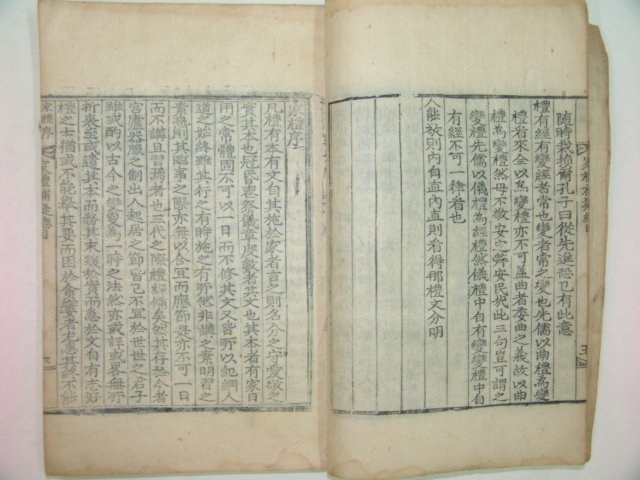 隨時裁損爾孔子曰從先進恐已有此意
禮有經有變經者常也變者常之變也先儒以曲禮為變
禮看來全以為變禮亦不可盖曲者委曲之義故以曲
禮為變禮然毋不敬安定辭安民哉此三句豈可謂之
變禮先儒以儀禮為經禮然儀禮中自有變變禮中自
有經不可一律看也
人能敬則內自直內直則看得那禮文分明
家禮序
凡禮有本有文自其施於家者言之則名分之守愛敬之
實其本也冠昏喪祭儀章度數者其文也其本者有家日
用之常體固不可以一日而不修其文又皆所以紀綱人
道之始終雖其行之有時施之有所然非講之素明習之
素熟則其臨事之際亦無以合宜而應節是亦不可一日
而不講且習焉者也三代之際禮經備矣然其存於今者
宮廬器服之制出入起居之節皆已不宜於世世之君子
雖或酌以古今之變更為一時之法然亦或詳或畧無所
折衷至或遺其本而務其末緩於實而急於文自有志好
禮之士猶或不能舉其要而困於貧窶者尤患其終不能